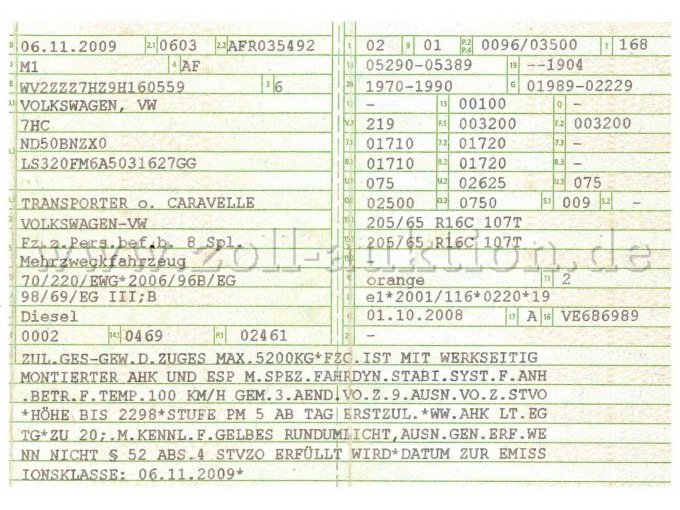 B 06.11.2009 2.1 0603 2.2 AFR035492
J M1 4 AF
E WV2ZZZ7HZ9H160559 3 6
VOLKSWAGEN, VW
7HC
ND50BNZX0
LS320FM6A5031627GG
TRANSPORTER o. CARAVELLE
VOLKSWAGEN-VW
Fz.z.Pers.bef.b. 8 Spl.
Mehrzweckfahrzeug
70/220/EWG*2006/96B/EG
98/69/EG III;B
Diesel
0002 14.1 0469 P.1 02461
L 02 9 01 P.2 P.4 0096/03500 T 168
18 05290-05389 19 --1904
20 1970-1990 G 01989-02229
12 - 13 00100 Q -
V.7 219 F.1 003200 F.2 003200
7.1 01710 7.2 01720 7.3 -
8.1 01710 8.2 01720 8.3 -
U.1 075 U.2 02625 U.3 075
O.1 02500 O.2 0750 S.1 009 S.2 -
15.1 205/65 R16C 107T
15.2 205/65 R16C 107T
-
R orange 11 2
K e1*2001/116*0220*19
6 01.10.2008 17 A 16 VE686989
21 -
ZUL.GES-GEW.D.ZUGES MAX.5200KG*FZG.IST MIT WERKSEITIG
MONTIERTER AHK UND ESP M.SPEZ.FAHRDYN.STABI.SYST.F.ANH
.BETR.F.TEMP.100 KM/H GEM.3.AEND.VO.Z.9.AUSN.VO.Z.STVO
*HÖHE BIS 2298*STUFE PM 5 AB TAG ERSTZUL.*WW.AHK LT.EG
TG*ZU 20;.M.KENNL.F.GELBES RUNDUMLICHT,AUSN.GEN.ERF.WE
NN NICHT § 52 ABS.4 STVZO ERFÜLLT WIRD*DATUM ZUR EMISS
IONSKLASSE: 06.11.2009*
www.zoll-auktion.de